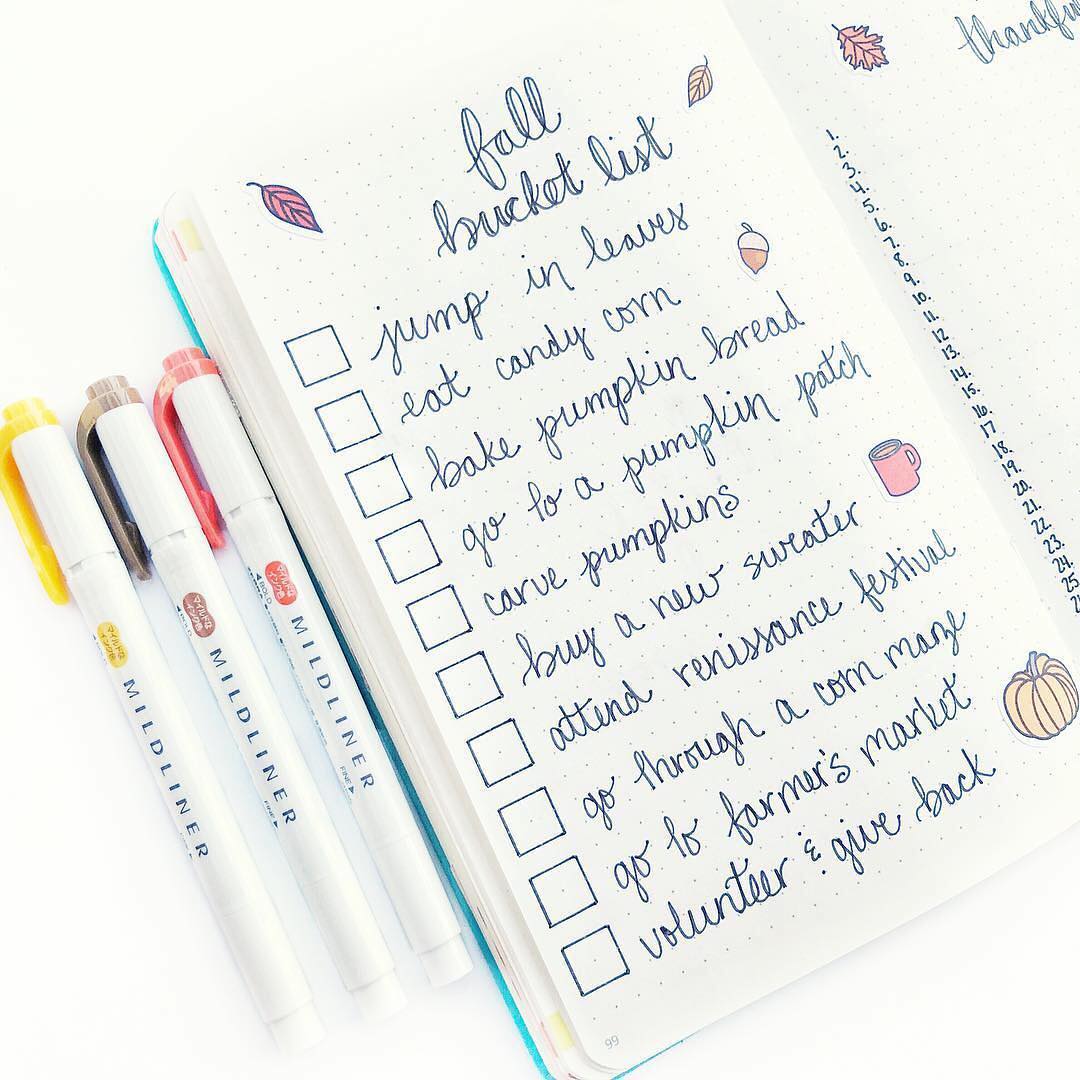 fall
bucket list
jump in leaves
eat candy corn
bake pumpkin bread
go to a pumpkin patch
carve pumpkins
buy a new sweater
attend renissance festival
go through a corn maze
go to farmer's market
volunteer & give back
99
1.
2.
3.
4.
5.
6.
7.
8.
9.
10.
11.
12
13.
14.
15.
16.
17
18.
19.
20.
21.
22.
23.
24.
25
マイルドな
インク色
MILDLINER
マイルドな
インク色
BOLD
MILDLINER
FINE
マイルドな
インク色
BOLD
MILDLINER
FINE